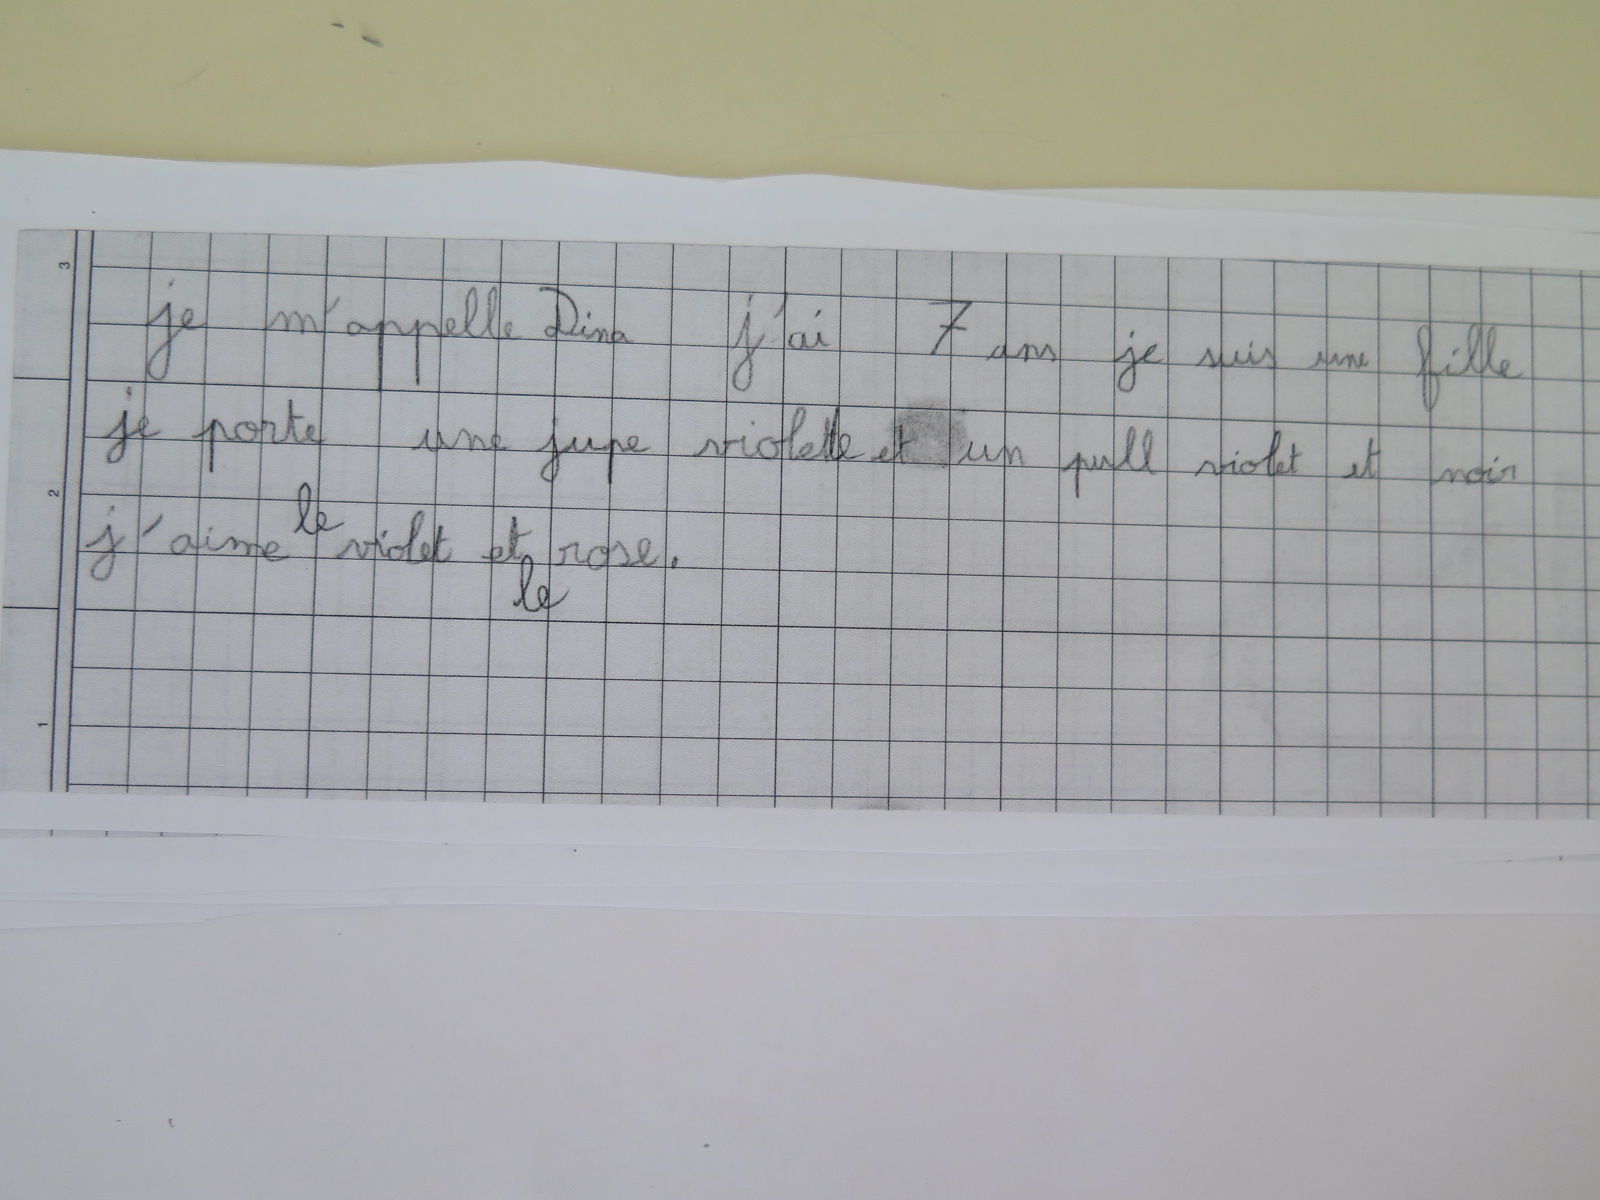 je m'appelle Dina j'ai 7 ans je suis une fille
je porte une jupe violette et un pull violet et noir
j'aime le violet et le rose.
3
2
1